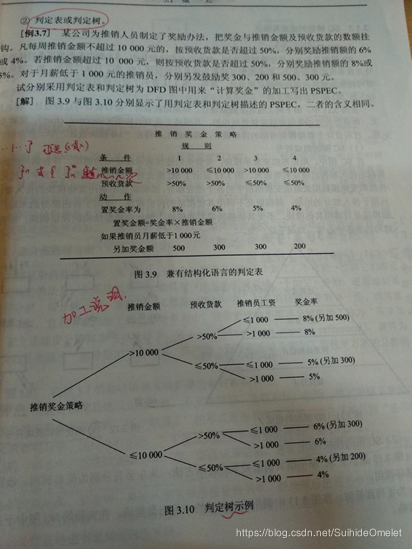 ② 判定表或判定树。
[例3.7] 某公司为推销人员制定了奖励办法,把奖金与推销金额及预收货款的数额挂
钩。凡每周推销金额不超过 10 000 元的,按预收货款是否超过 50%,分别奖励推销额的 6%
或 4%。若推销金额超过 10 000 元,则按预收货款是否超过 50%,分别奖励推销额的 8%或
5%。对于月薪低于 1 000 元的推销员,分别另发鼓励奖 300、200 和 500、300 元。
试分别采用判定表和判定树为 DFD 图中用来“计算奖金”的加工写出 PSPEC。
[解] 图 3.9 与图 3.10 分别显示了用判定表和判定树描述的 PSPEC,二者的含义相同。
推 销 奖 金 策 略
规 则
条 件 1 2 3 4
推销金额 >10 000 ≤10 000 >10 000 ≤10 000
预收货款 >50% >50% ≤50% ≤50%
动 作
置奖金率为 8% 6% 5% 4%
置奖金额=奖金率×推销金额
如果推销员月薪低于1 000元
另加奖金额 500 300 300 200
图 3.9 兼有结构化语言的判定表
加工说明
推销金额 预收货款 推销员工资 奖金率
≤1 000 8% (另加 500)
>50%
>1 000 8%
>10 000
≤1 000 5% (另加 300)
≤50%
>1 000 5%
推销奖金策略
≤1 000 6% (另加 300)
>50%
>1 000 6%
≤10 000
≤1 000 4% (另加 200)
≤50%
>1 000 4%
图 3.10 判定树示例
https://blog.csdn.net/SuihideOmelet